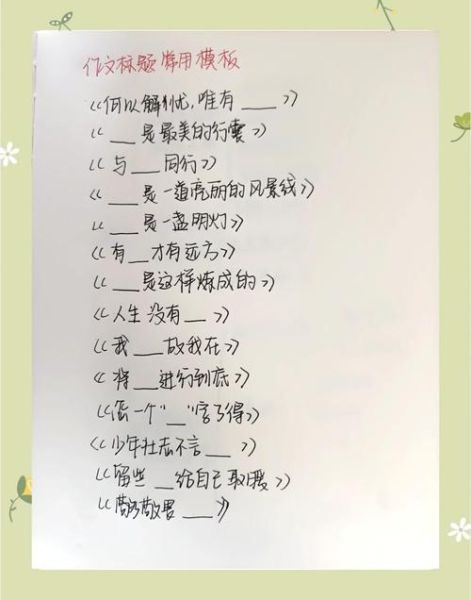 作文标题常用模板
《何以解忧,唯有___》
《___是最美的行囊》
《与___同行》
《___是一道亮丽的风景线》
《___是一盏明灯》
《有___才有远方》
《___是这样炼成的》
《人生没有___》
《我___故我在》
《将___进行到底》
一个"___"字了得》
《少年壮志不言___》
《留些___给自己取暖》
___》